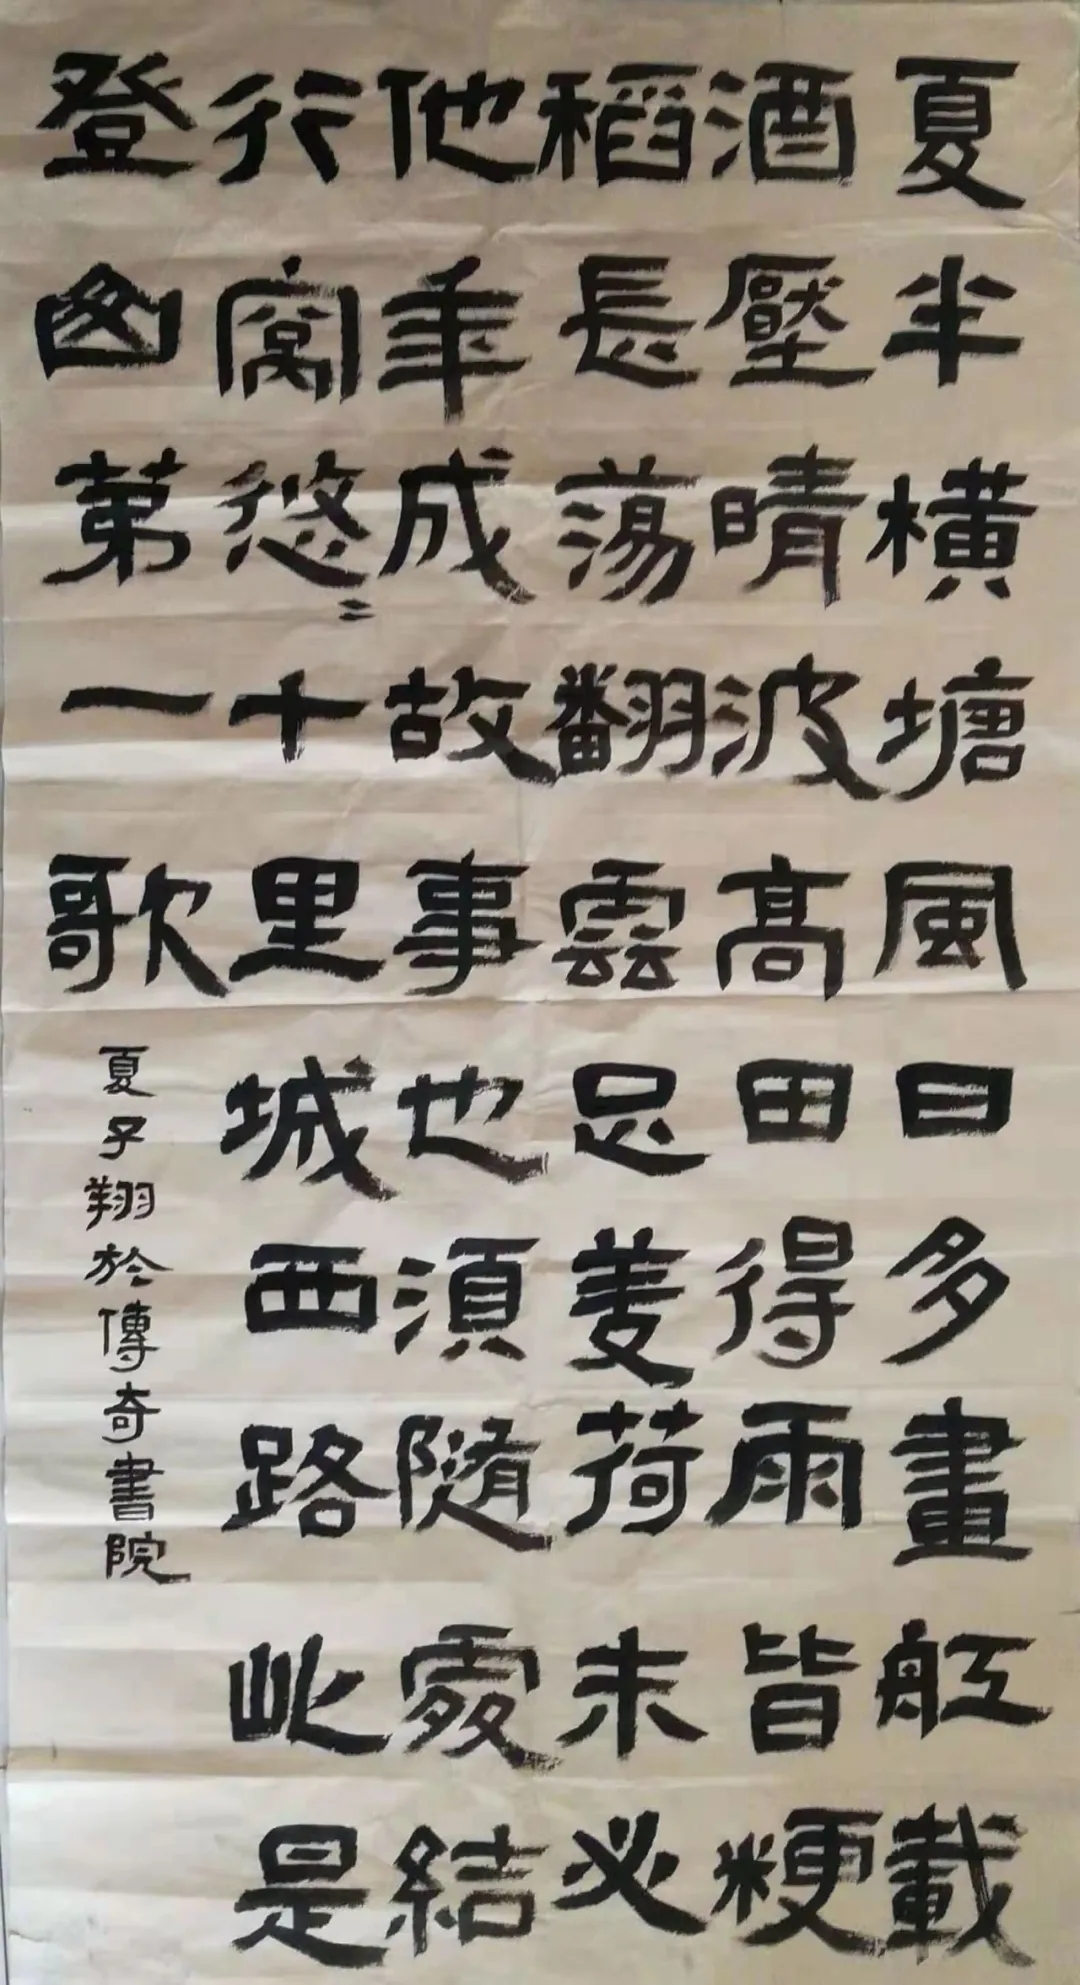 夏半橫塘風日多畫舡載
酒壓晴波高田得雨皆粳
稻長蕩翻雲足芰荷未必
他年成故事也須隨處結
行窩悠〻十里城西路此是
登第一歌
夏子翔於傳奇書院